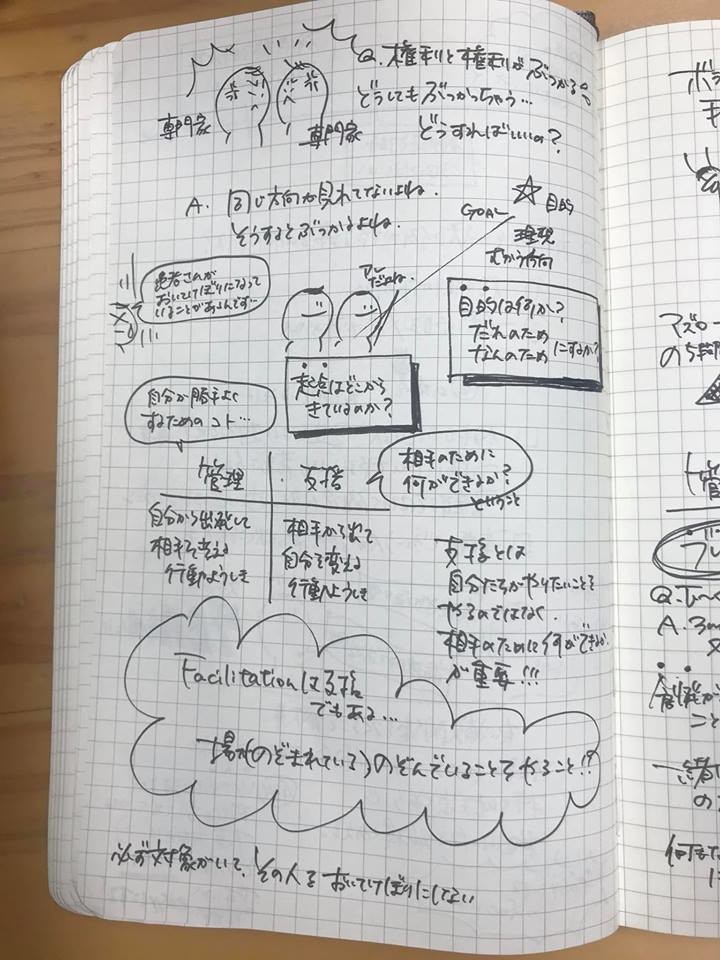 Q. 権利と権利がぶつかる。
どうしてもぶっかっちゃう…
どうすればいいの？
専門家
専門家
A. 同じ方向が見れてないよね。
そうするとぶつかるよね。
GOAL
目的
理現
むかう方向
患者さんが
おいてけぼりになって
いることがあるんです…
だよね。
目的は何か？
だれのため
なんのためにするか？
起点はどこから
きているのか？
自分が勝手よく
するためのコト…
管理
支援
相手のために
何ができるか？
ということ
自分から出発して
相手を変える
行動ようしき
相手から出て
自分を変える
行動ようしき
支援とは
自分たちがやりたいことを
やるのではなく
相手のために何ができるか
が重要!!!
Facilitationは支援
でもある…
場が(のぞまれている)のぞんでいることをやること!?
必ず対象がいて、その人をおいてけぼりにしない
ボラ
マズロー
の5段
管
Q.
A. 3
こと
一緒に
の
何
に